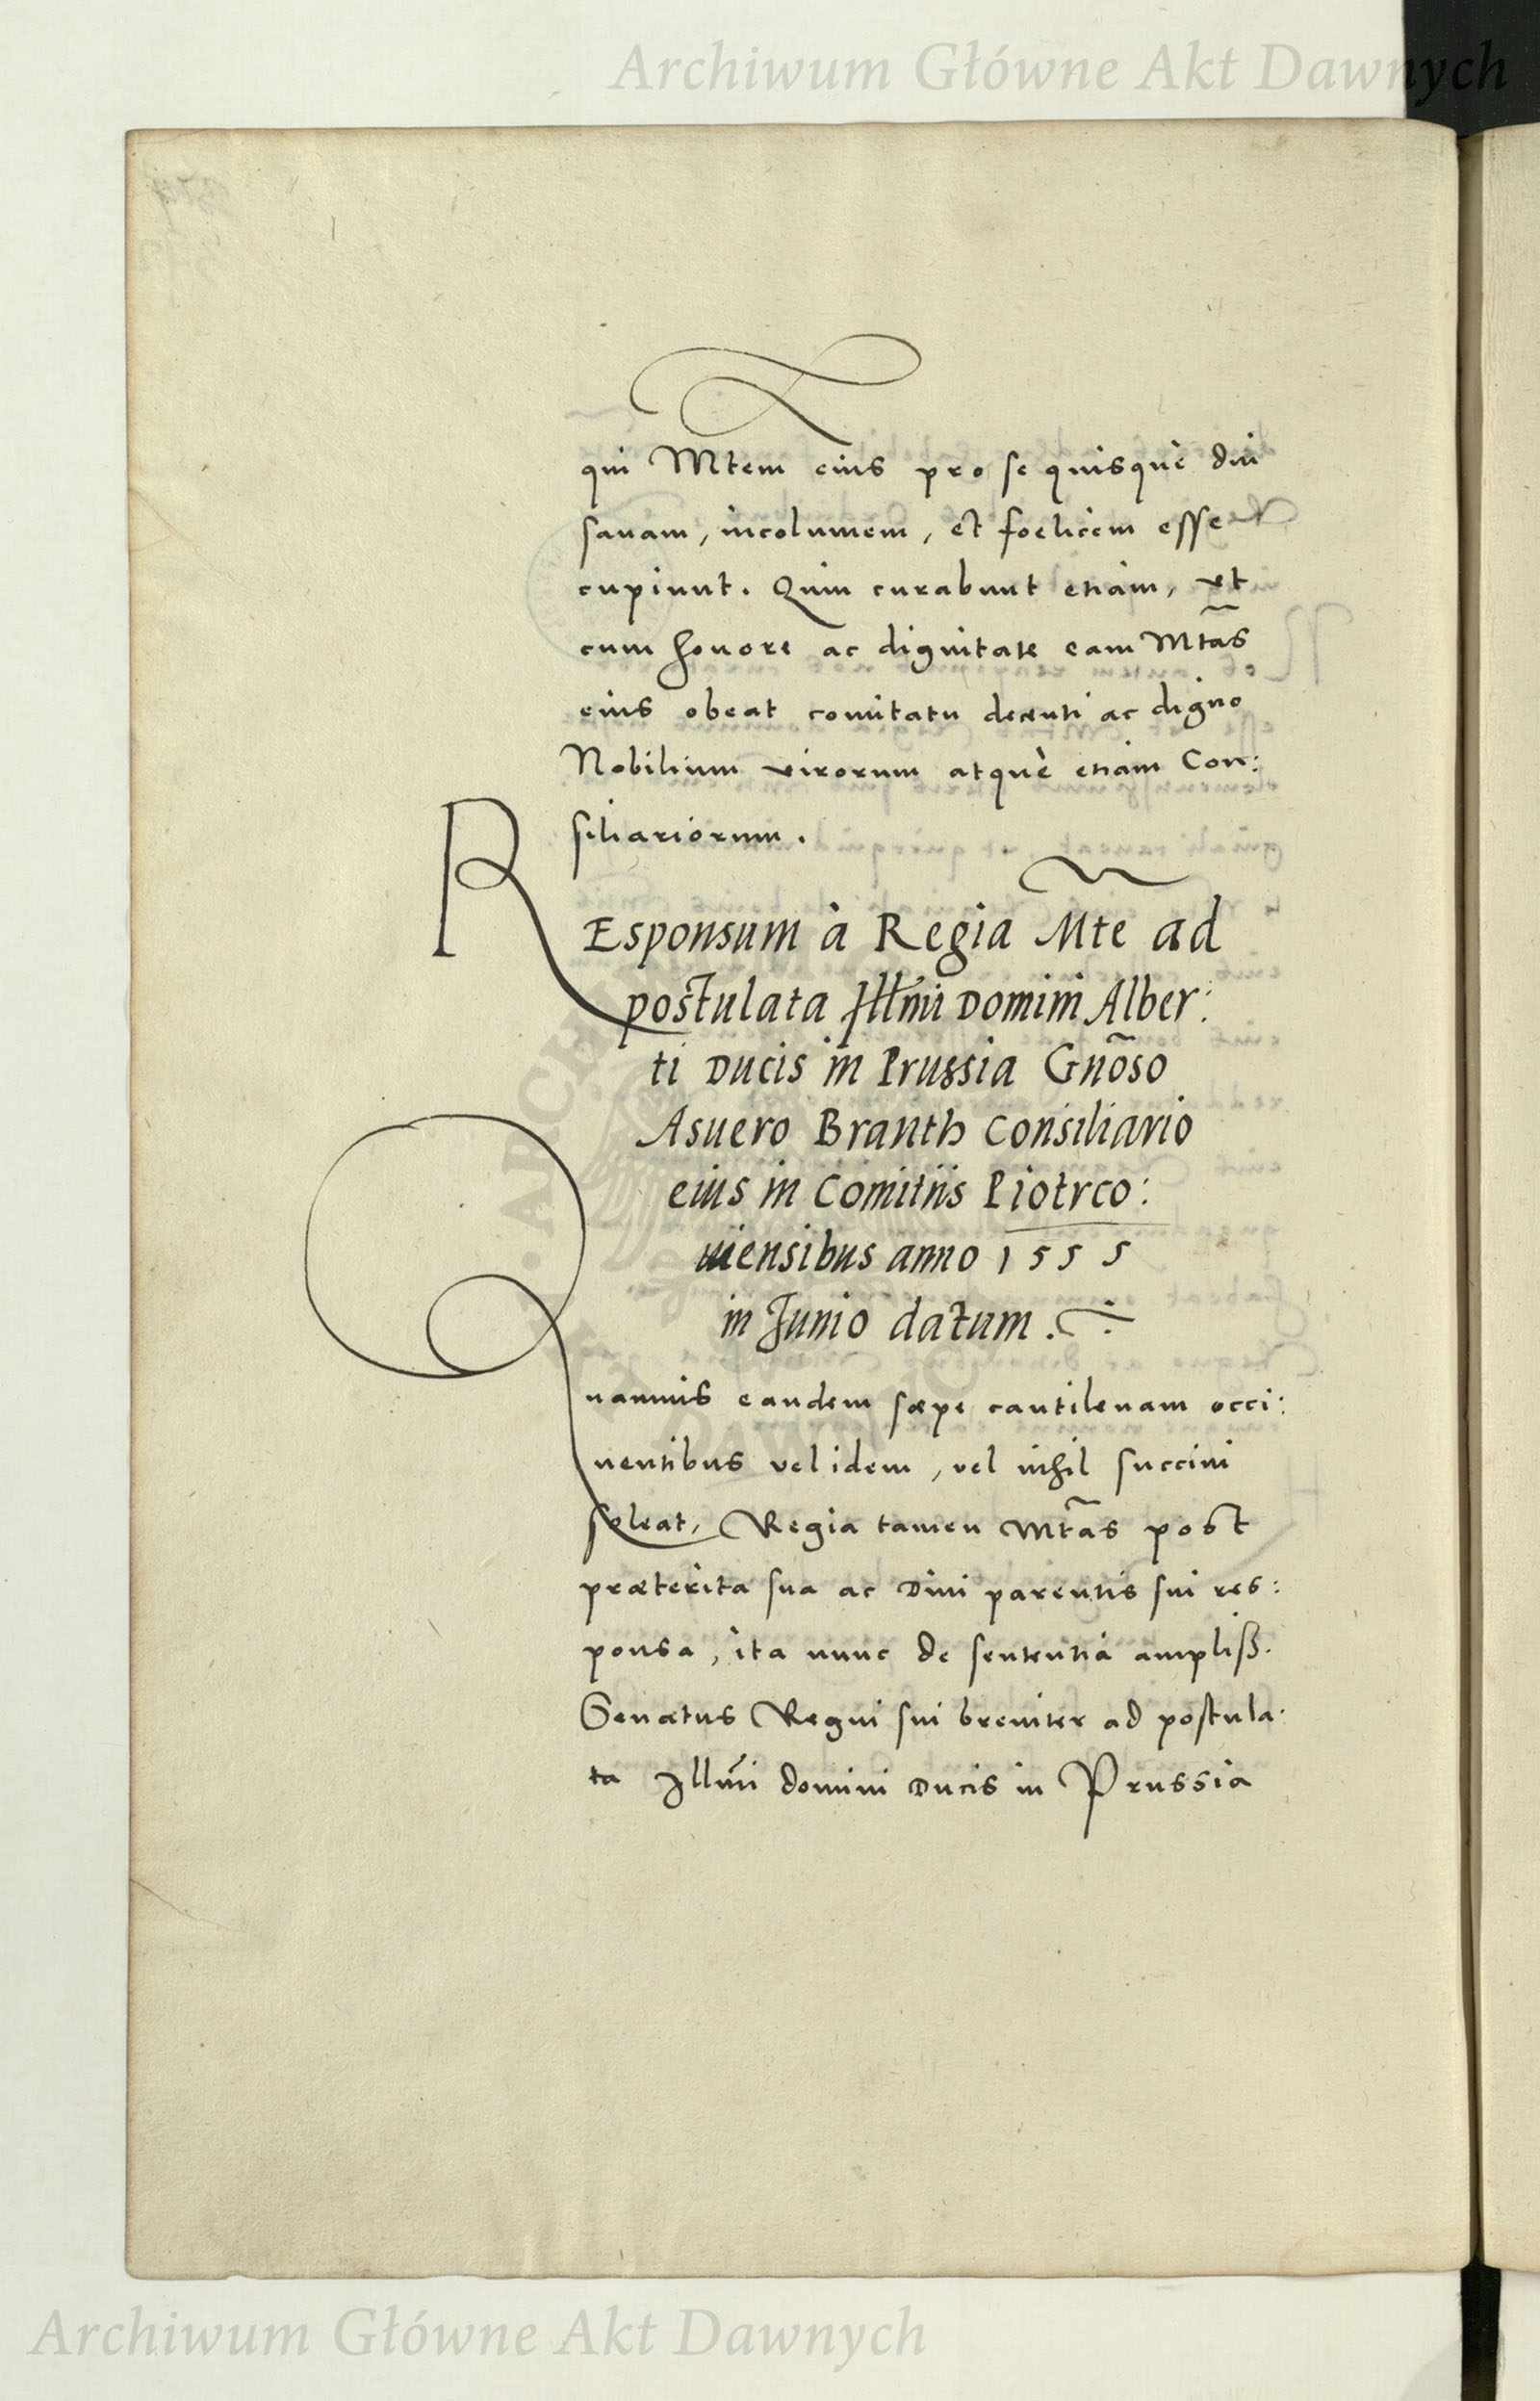 Archiwum Główne Akt Dawnych
qui Mtem eius pro se quisquè diu
sanam, incolumem, et foelicem esse
cupiunt. Quin curabunt etiam, vt
cum honore ac dignitate eam Mtas̃
eius obeat comitatu decenti ac digno
Nobilium virorum atquè etiam Con:
siliariorum.
REsponsum à Regia Mte ad
postulata Illmi Domini Alber:
ti Ducis in Prussia Gnõso
Asuero Branth Consiliario
eius in Comitiis Piotrco:
uiensibus anno 1555
in Junio datum.
Quamuis eandem sæpe cantilenam occi:
nentibus vel idem, vel nihil succini
soleat, Regia tamen Mtãs post
præterita sua ac Diui parentis sui res:
ponsa, ita nunc de sententia ampliss.
Senatus Regni sui breuiter ad postula.
ta Illmi domini Ducis in Prussia
Archiwum Główne Akt Dawnych